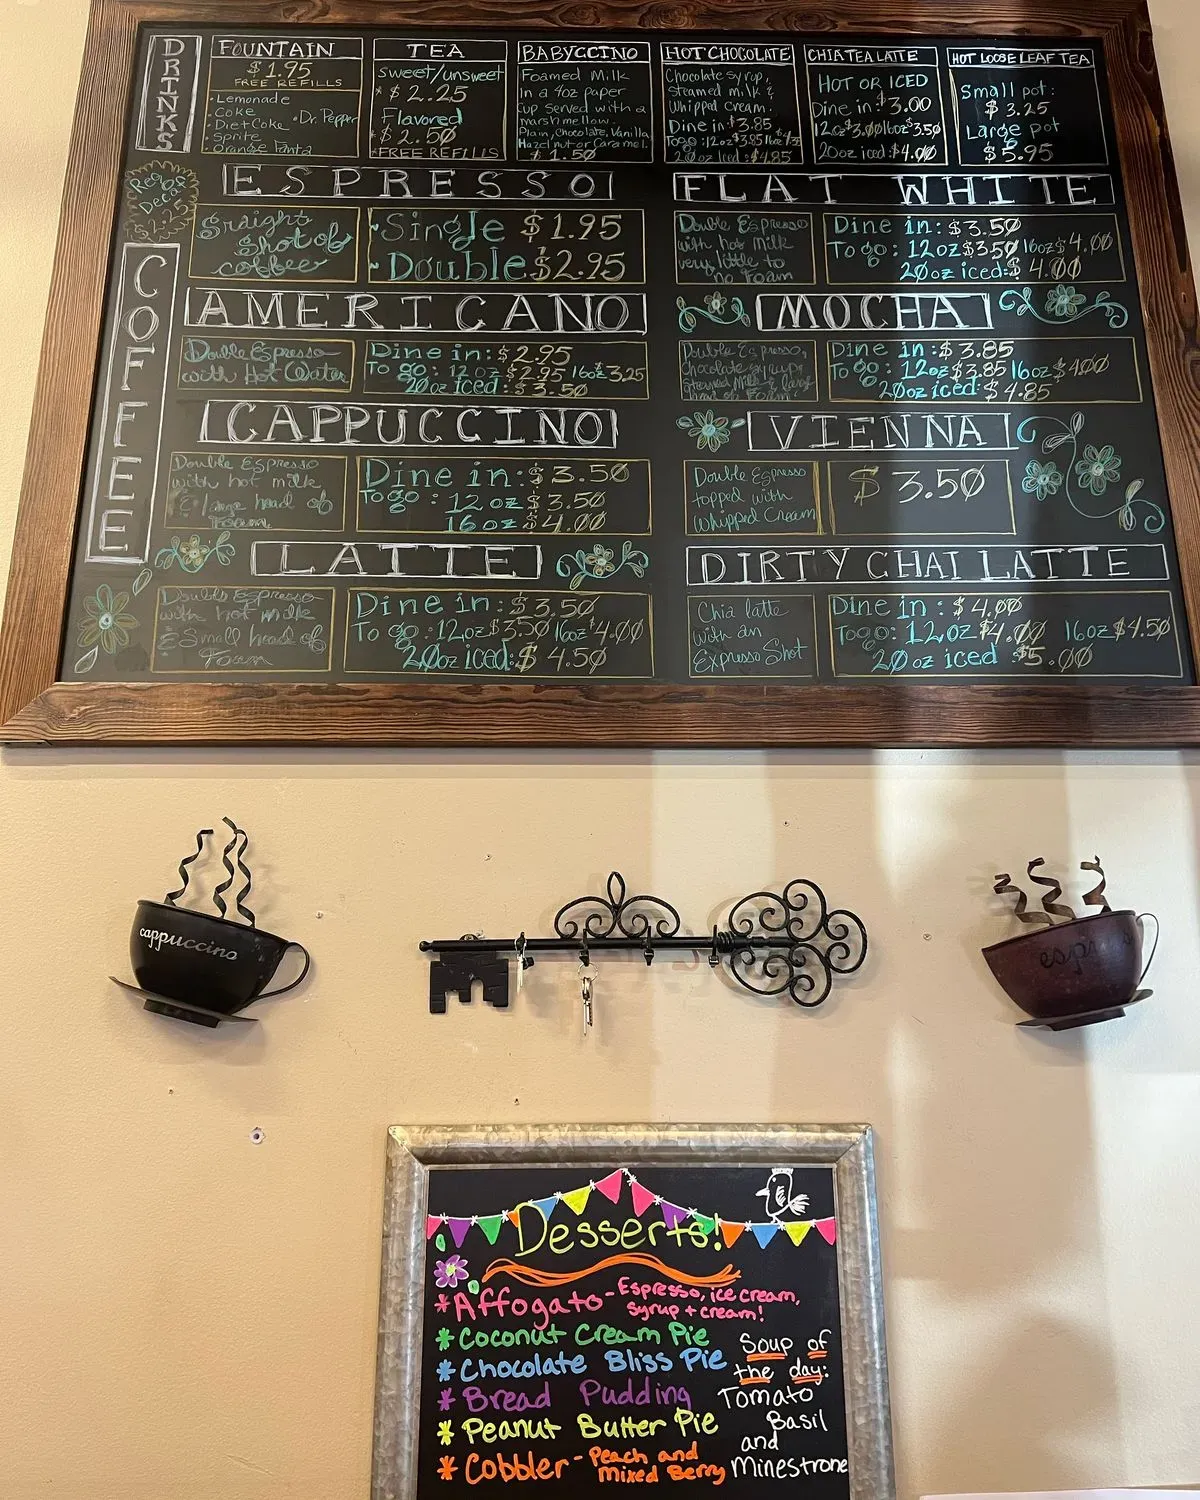 DRINKS
FOUNTAIN
$1.95
FREE REFILLS
• Lemonade
• Coke
• Diet Coke • Dr. Pepper
• Sprite
• Orange Fanta
TEA
sweet/unsweet
* $2.25
Flavored
* $2.50
*FREE REFILLS
BABYCCINO
Foamed Milk
In a 4oz paper
cup served with a
marshmellow.
Plain, Chocolate, Vanilla,
Hazelnut or Caramel.
$1.50
HOT CHOCOLATE
Chocolate syrup,
steamed milk &
Whipped cream.
Dine in: $3.85
To go: 12oz $3.85 16oz
20oz Iced: $4.85
CHIA TEA LATTE
HOT OR ICED
Dine in: $3.00
12oz $3.00 16oz $3.50
20oz iced: $4.00
HOT LOOSE LEAF TEA
Small pot:
$3.25
Large pot
$5.95
Reg or
Decaf
COFFEE
ESPRESSO
Straight
shot of
coffee
Single $1.95
Double $2.95
AMERICANO
Double Espresso
with Hot Water
Dine in: $2.95
To go: 12oz $2.95 16oz $3.25
20oz iced: $3.50
CAPPUCCINO
Double Espresso
with hot milk
& large head of
Foam
Dine in: $3.50
To go: 12oz $3.50
16oz $4.00
LATTE
Double Espresso
with hot milk
& Small head of
Foam
Dine in: $3.50
To go: 12oz $3.50 16oz $4.00
20oz iced: $4.50
FLAT WHITE
Double Espresso
with hot milk
very little to
no Foam
Dine in: $3.50
To go: 12oz $3.50 16oz $4.00
20oz iced: $4.00
MOCHA
Double Espresso,
Chocolate syrup,
Steamed Milk & large
head of Foam
Dine in: $3.85
To go: 12oz $3.85 16oz $4.00
20oz iced: $4.85
VIENNA
Double Espresso
topped with
Whipped Cream
$3.50
DIRTY CHAI LATTE
Chia latte
with an
Expresso Shot
Dine in: $4.00
To go: 12oz $4.00 16oz $4.50
20oz iced $5.00
cappuccino
Desserts!
*Affogato - Espresso, ice cream,
syrup + cream!
*Coconut Cream Pie
*Chocolate Bliss Pie
*Bread Pudding
*Peanut Butter Pie
*Cobbler - Peach and
Mixed Berry
Soup of
the day:
Tomato
Basil
and
Minestrone